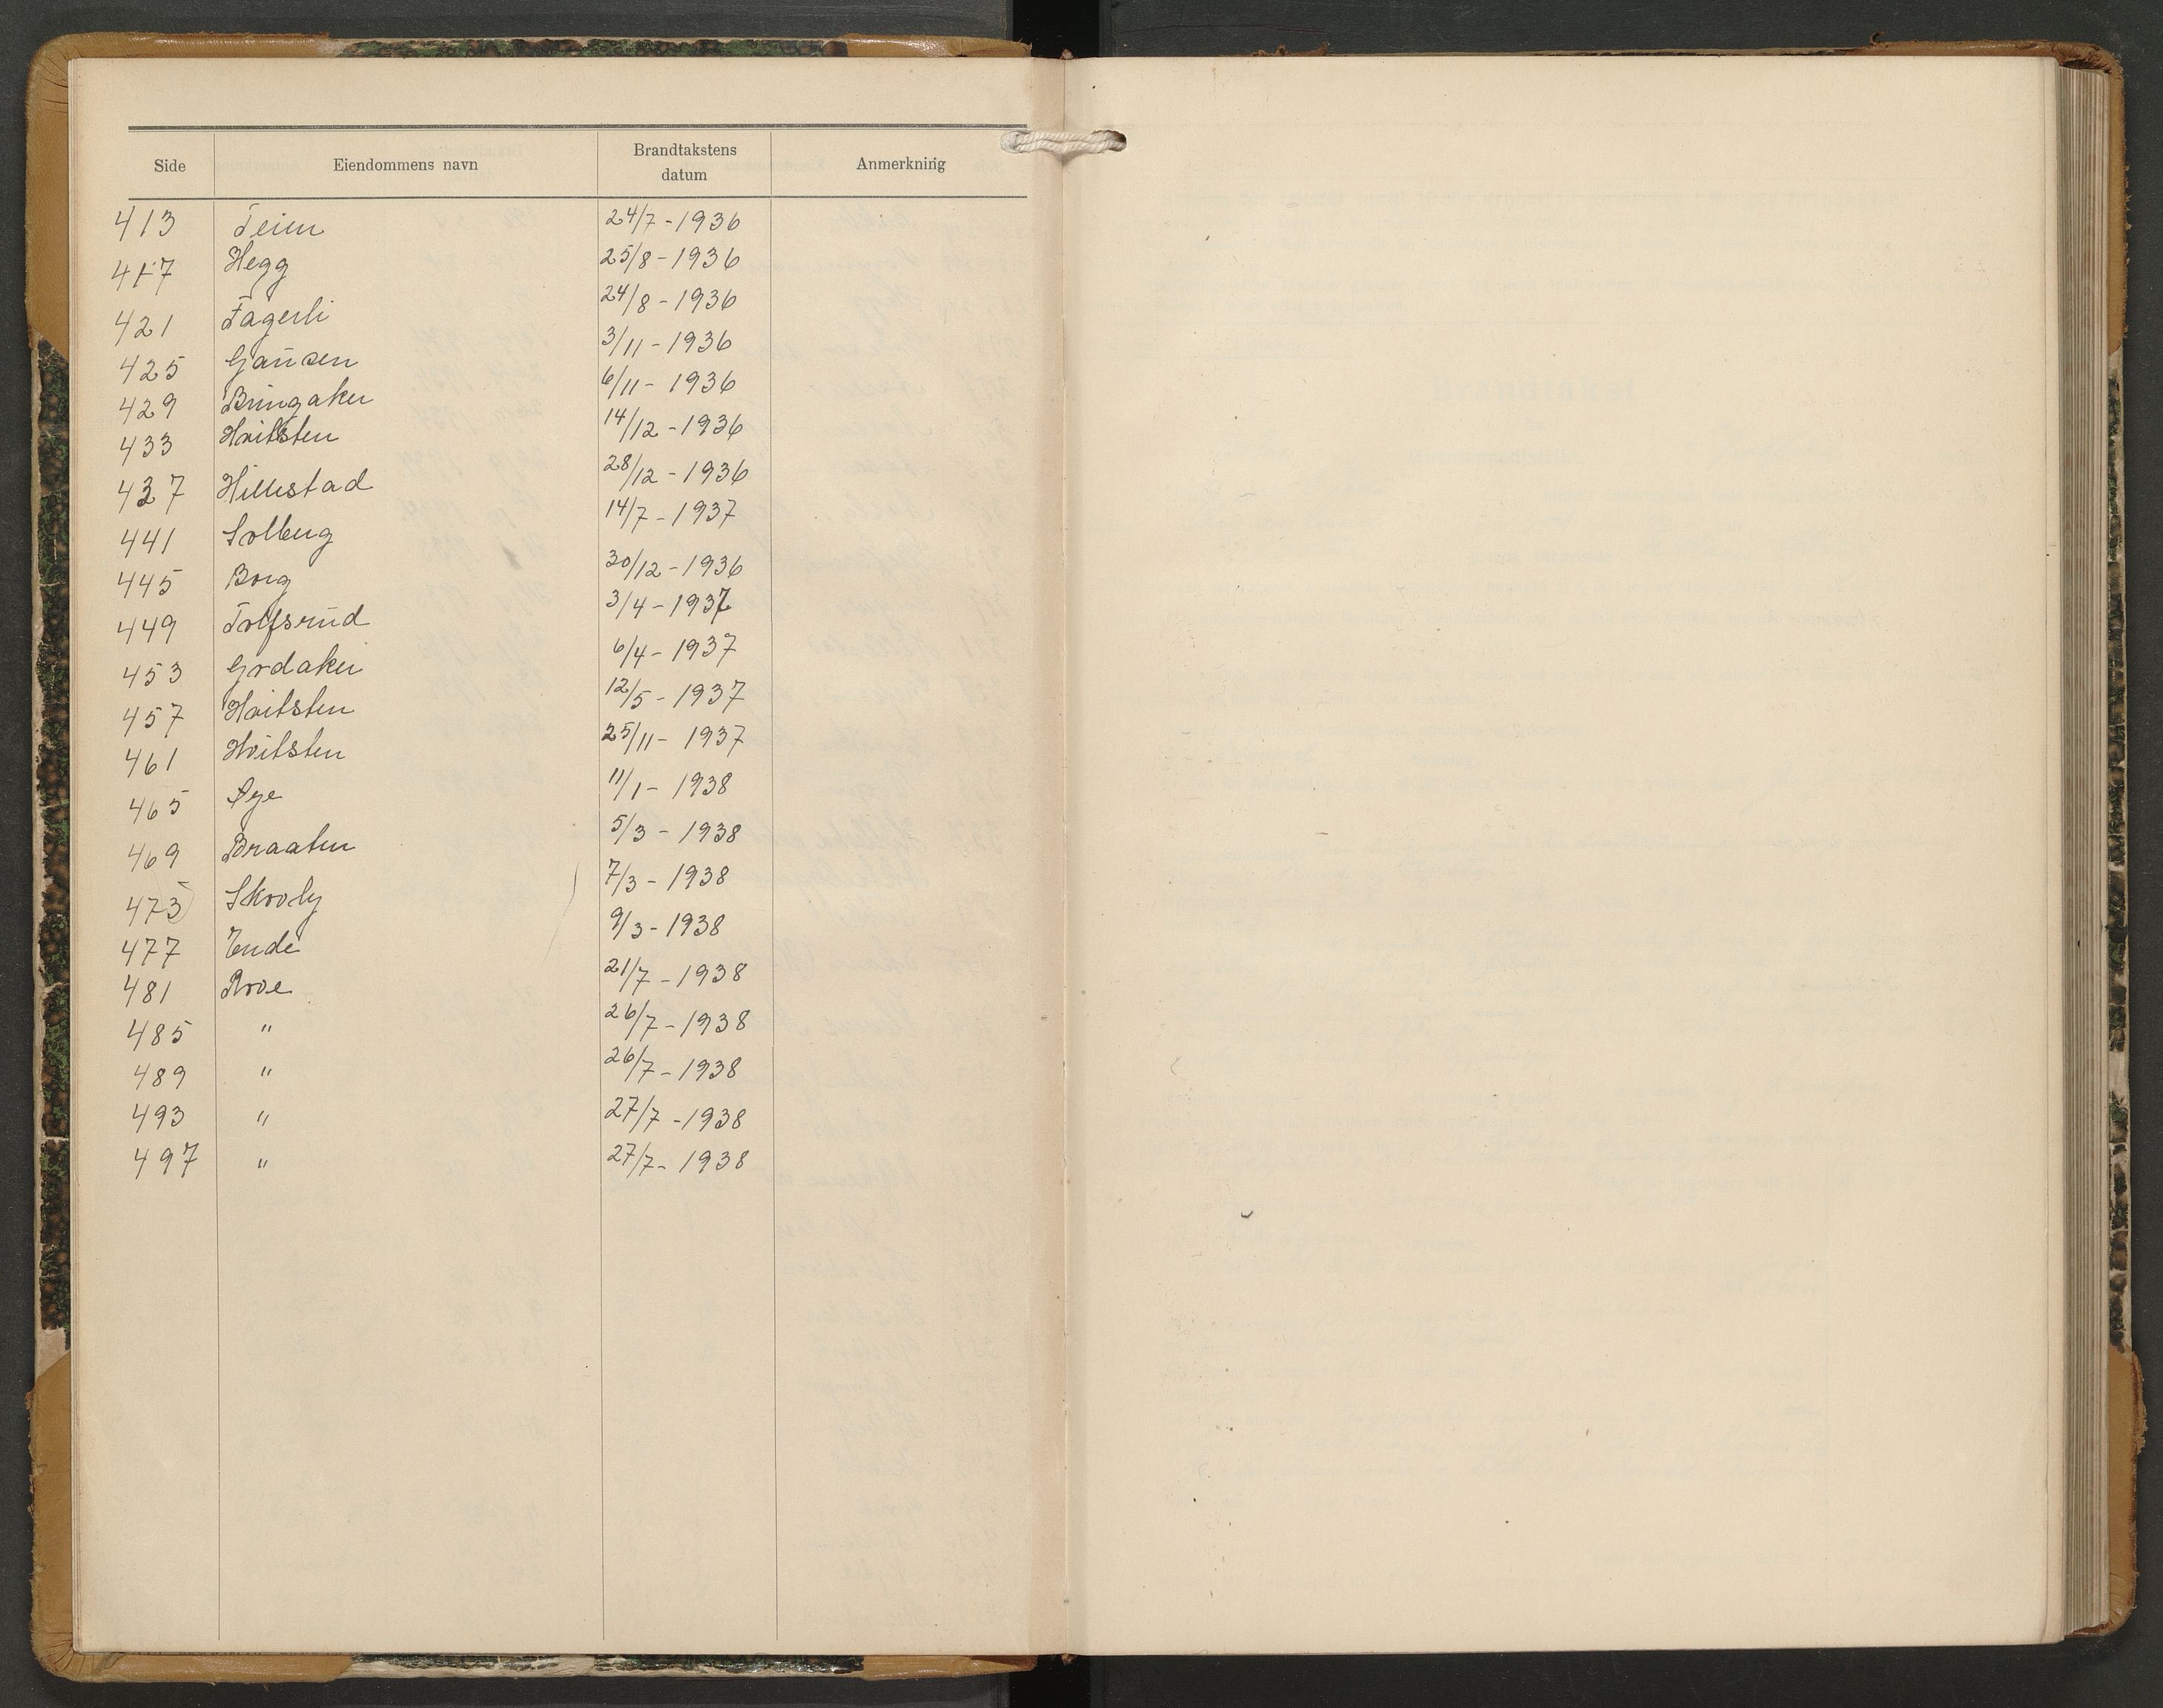 Side Eiendommens navn Brandtakstens datum Anmerkning
413 Teien 24/7 - 1936
417 Hegg 25/8 - 1936
421 Fagerli 24/8 - 1936
425 Gausen 3/11 - 1936
429 Bringaker 6/11 - 1936
433 Hvitsten 14/12 - 1936
437 Hillestad 28/12 - 1936
441 Solberg 14/7 - 1937
445 Borg 30/12 - 1936
449 Tolfsrud 3/4 - 1937
453 Grdaker 6/4 - 1937
457 Hvitsten 12/5 - 1937
461 Hvitsten 25/11 - 1937
465 Øye 11/1 - 1938
469 Braaten 5/3 - 1938
473 Skroly 7/3 - 1938
477 Ende 9/3 - 1938
481 Roe 21/7 - 1938
485 " 26/7 - 1938
489 " 26/7 - 1938
493 " 27/7 - 1938
497 " 27/7 - 1938